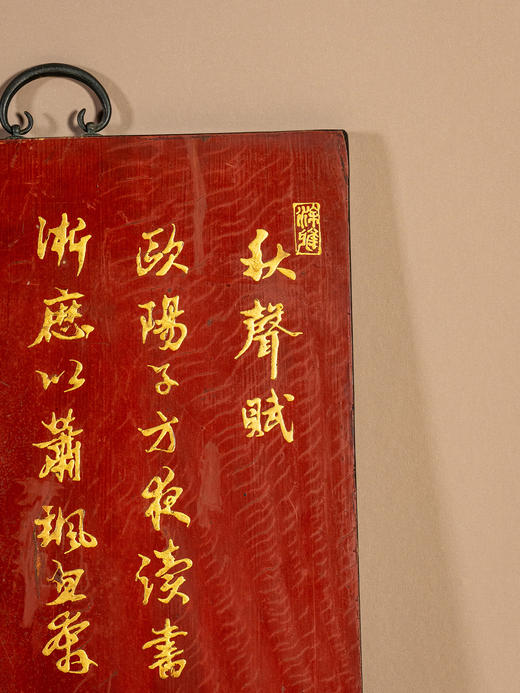 秋聲賦
歐陽子方夜讀書
淅以蕭颯忽奔